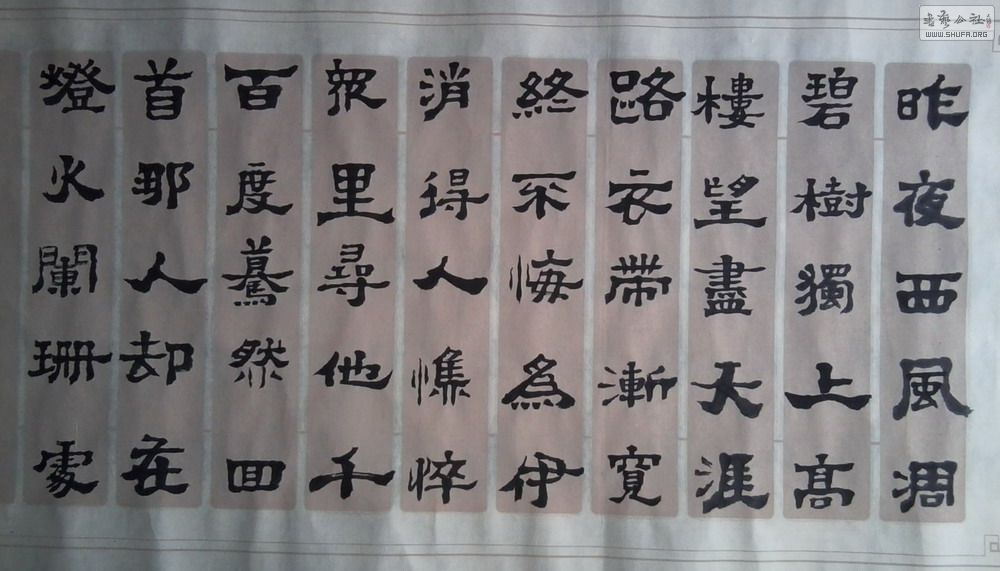 昨夜西風凋
碧樹獨上高
樓望盡天涯
路衣帶漸寬
終不悔為伊
消得人憔悴
眾里尋他千
百度驀然回
首那人却在
燈火闌珊處
書藝公社
WWW.SHUFA.ORG